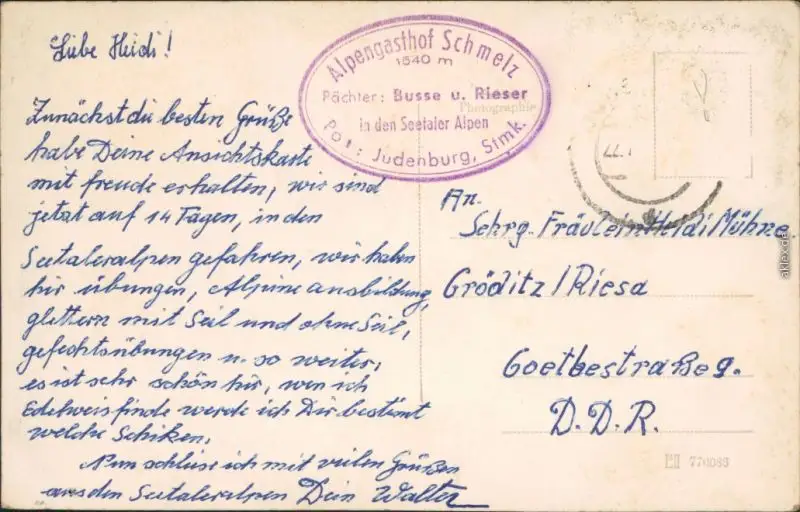 Liebe Heidi!
Alpengasthof Schmelz
1640 m
Pächter: Busse u. Rieser
Photographie
in den Seetaler Alpen
Post: Judenburg, Stmk.
Zunächst die besten Grüße
habe Deine Ansichtskarte
mit freude erhalten, wir sind
jetzt auf 14 Tagen, in den
Seetaleralpen gefahren, wir haben
hir übungen, Alpine ausbildung,
glettern mit Seil und ohne Seil,
gefechtsübungen u. so weiter,
es ist sehr schön hir, wen ich
Edelweis finde werde ich Dir bestimt
welche Schiken.
Nun schliese ich mit vielen Grüßen
aus den Seetaleralpen Dein Walter
An.
Sehrg. Fräulein Heidi Mühne
Gröditz / Riesa
Goetbestraße 9.
D. D. R.
770083
akpool.de